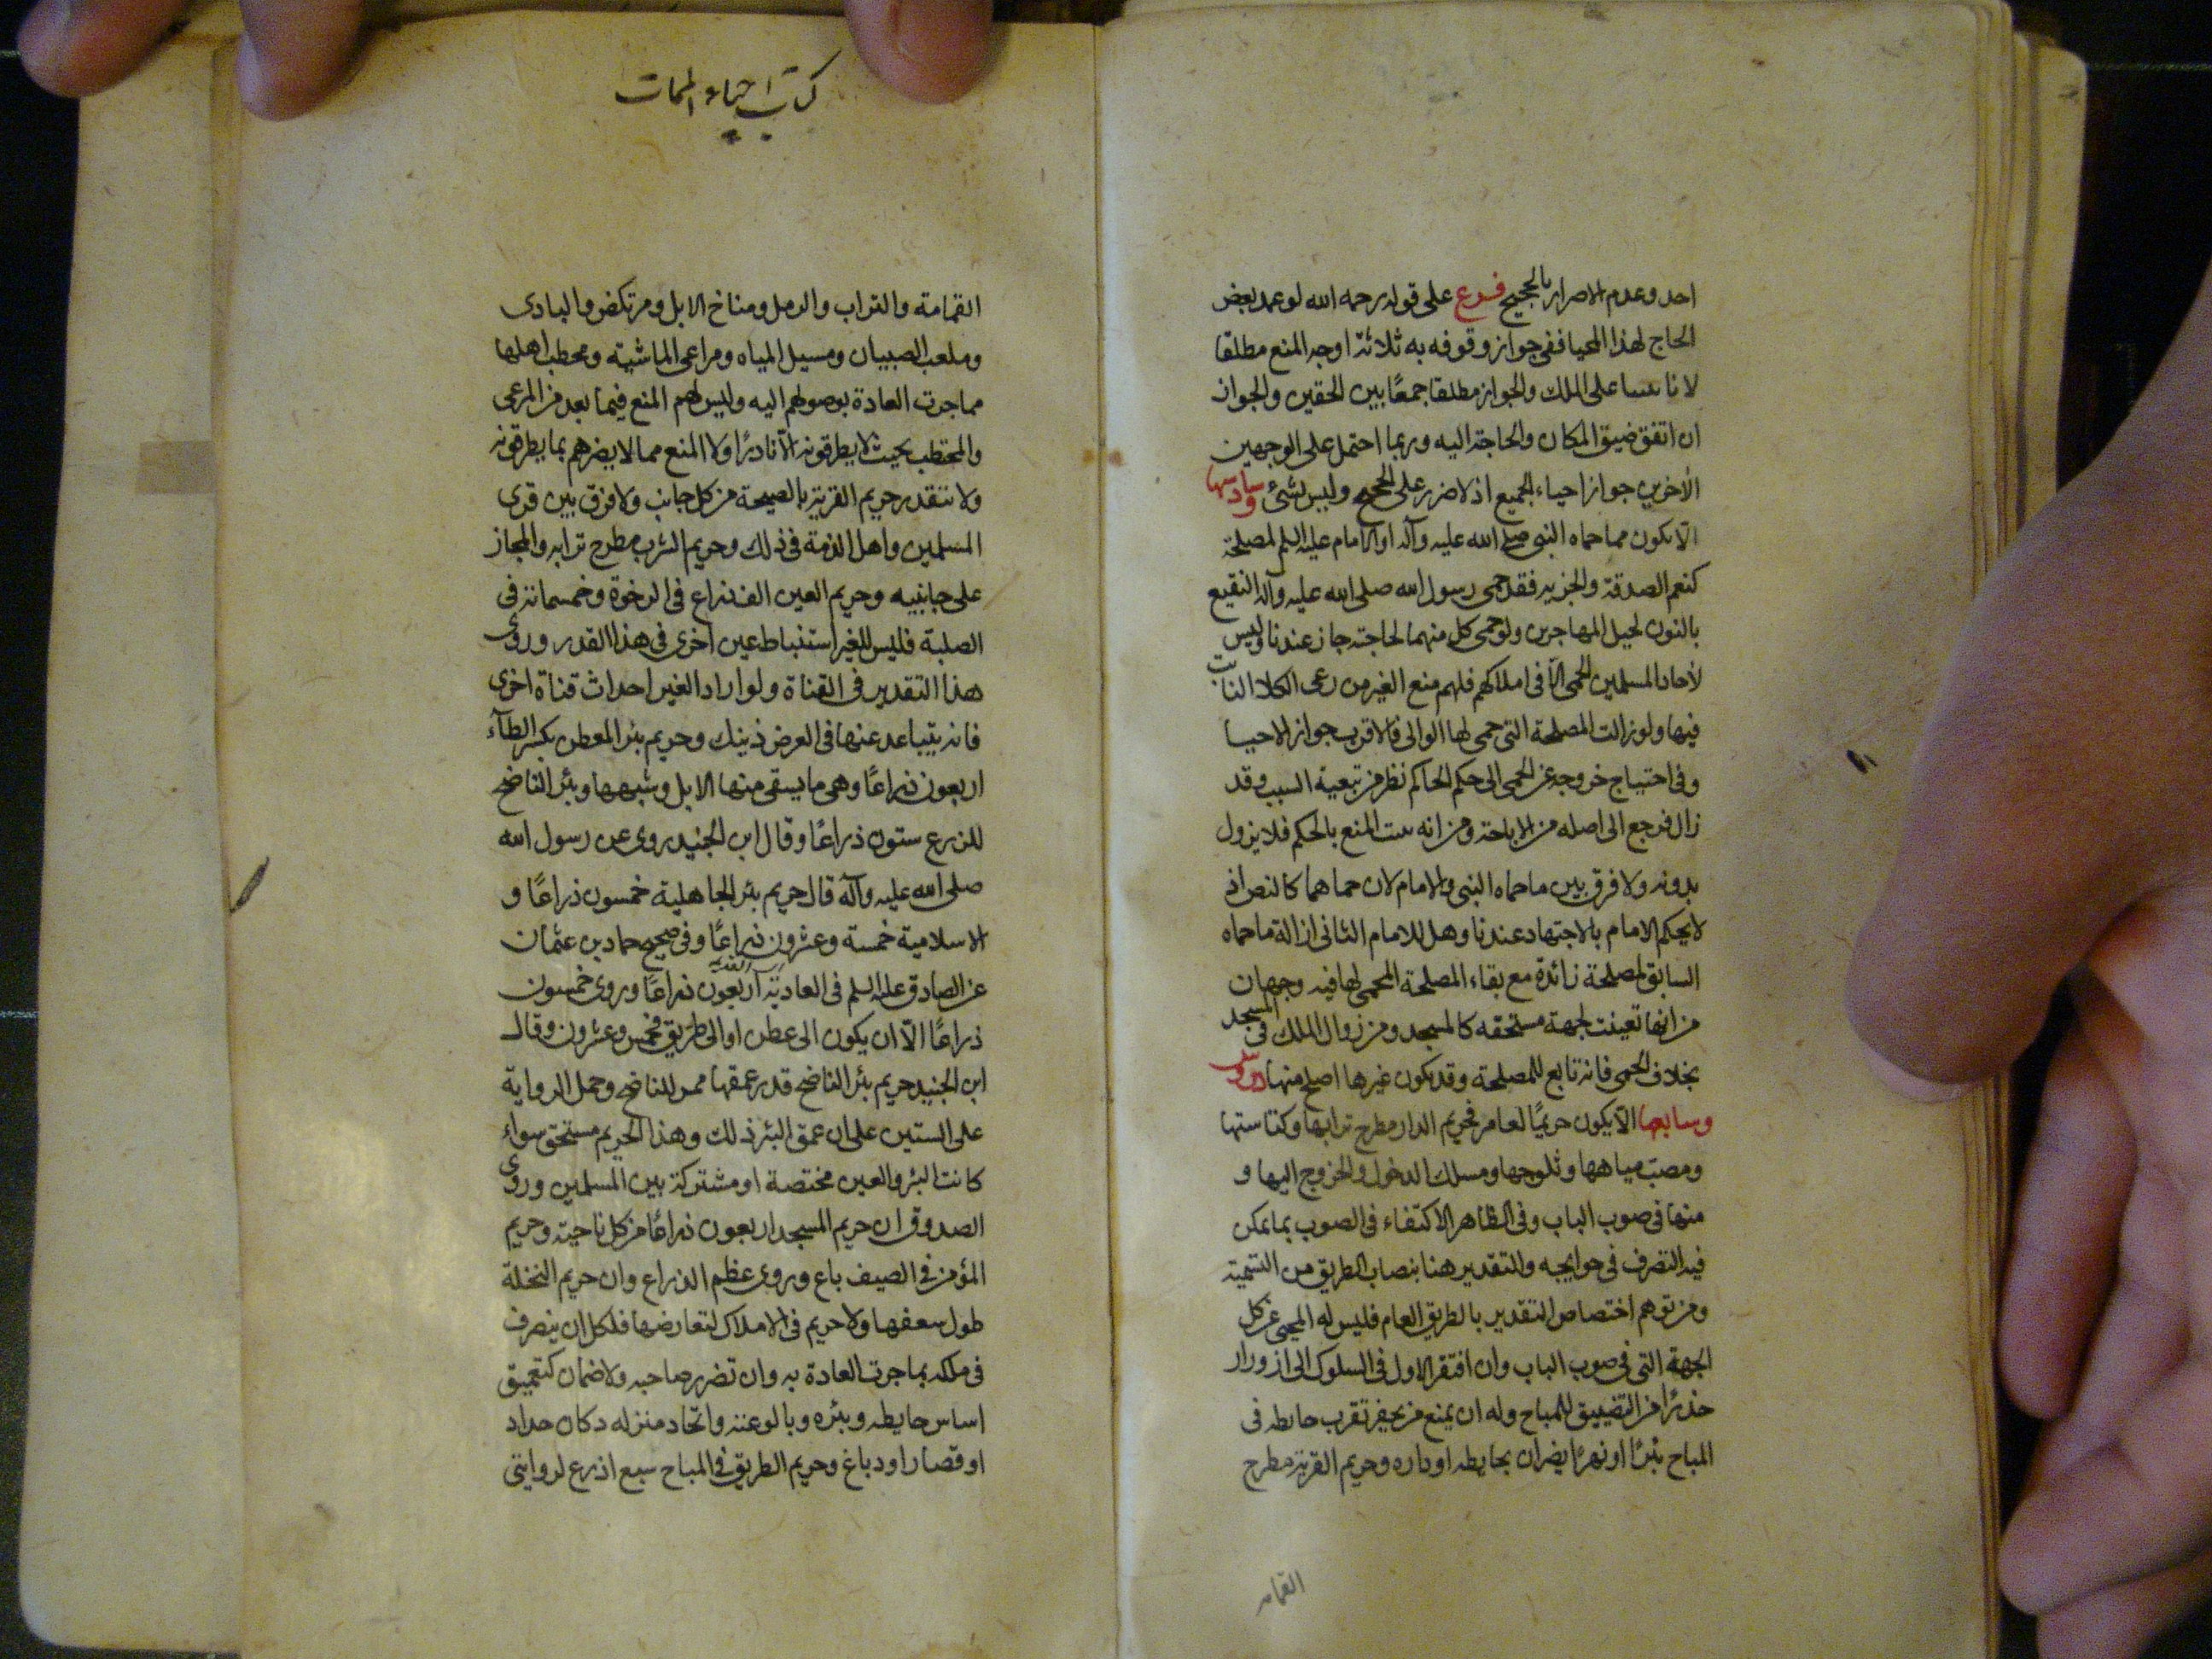 احد وعدم الاصرار بالحجيج فرع على قوله رحمه الله لو عمد بعض
الحاج لهذا المحيا ففي جواز وقوفه به ثلاثة اوجه المنع مطلقا
لانا على الملك والجواز مطلقا جمعًا بين الحقين والجواز
ان اتفق ضيق المكان والحاجة اليه وربما احتمل على الوجهين
الأخرين جواز احياء الجميع اذ لا ضرر على الحجيج وليس بشئ وسادسها
الا يكون مما حماه النبي صلى الله عليه وآله او الامام عليه السلم لمصلحة
كنعم الصدقة والجزيه فقد حمى رسول الله صلى الله عليه وآله النقيع
بالنون لخيل المهاجرين ولو حمى كل منهما لحاجته جاز عندنا وليس
لأحاد المسلمين الحمى الا في املاكهم فلهم منع الغير من رعى الكلاء النابت
فيها ولو زالت المصلحة التي حمى لها الوالى فالاقرب جواز الاحيا
وفى احتياج خروجه عن الحمى الى حكم الحاكم نظر من تبعية السبب وقد
زال فرجع الى اصله من الاباحة ومن انه ىبت المنع بالحكم فلا يزول
بدونه ولا فرق بين ما حماه النبى والامام لان حماهما كالنص اذ
لا يحكم الامام بالاجتهاد عندنا وهل للامام الثانى ازالة ما حماه
السابق لمصلحة زائدة مع بقاء المصلحة المحمى لها فيه وجهان
من انها تعينت لجهة مستحقه كالمسجد ومن زوال الملك فى المسجد
بخلاف الحمى فانه تابع للمصلحة وقد يكون غيرها اصلح منها
وسابعها الا يكون حريمًا لعامر فحريم الدار مطرح ترابها وكناستها
ومصب مياهها وثلوجها ومسلك الدخول والخروج اليها و
منها فى صوب الباب وفى الظاهر الاكتفاء فى الصوب بما يمكن
فيه التصرف فى حوايجه والتقدير هنا بنصاب الطريق من التسمية
ومن توهم اختصاص التقدير بالطريق العام فليس له المحيى عن كل
الجهة التى فى صوب الباب وان افتقر الاول فى السلوك الى ازورار
حذرًا من التضييق للمباح وله ان يمنع من يحفر تقرب حايطه فى
المباح بئرًا او نهرًا يضران بحايطه او داره وحريم القرية مطرح
القمامه
كتاب احياء الممات
القمامة والتراب والرمل ومناخ الابل ومرتكض والبادى
وملعب الصبيان ومسيل المياه ومراعى الماشية ومحطب اهلها
مما جرت العادة بوصولهم اليه وليس لهم المنع فيما بعد من المرعى
والمحتطب بحيث لا يطرقونه الا نادرًا ولا المنع مما لا يضرهم بما يطرقونه
ولا تتقدر حريم القرية بالصيحة من كل جانب ولا فرق بين قرى
المسلمين واهل الذمة فى ذلك وحريم الشرب مطرح ترابه والمجاز
على جانبيه وحريم العين الف ذراع فى الرخوة وخمسمائة فى
الصلبة فليس للغير استنباط عين اخرى فى هذا القدر وروى
هذا التقدير فى القناة ولو اراد الغير احداث قناة اخرى
فانه يتباعد عنها فى العرض ذينك وحريم بئر المعطن بكسر الطآء
اربعون ذراعًا وهى ما يسقى منها الابل وشبهها وبئر الناضح
للزرع ستون ذراعًا وقال ابن الجنيد روى عن رسول الله
صلى الله عليه وآله قال حريم بئر الجاهلية خمسون ذراعًا و
الاسلامية خمسة وعشرون ذراعًا وفى صحيح حماد بن عثمان
عن الصادق عليه السلم فى العادية اربعون ذراعًا وروى خمسون
ذراعًا الّا ان يكون الى عطن او الى طريق فخمس وعشرون وقال
ابن الجنيد حريم بئر الناضح قدر عمقها ممر للناضح وحمل الرواية
على الستين على ان عمق البئر ذلك وهذا الحريم مستحق سواء
كانت البئر والعين مختصة او مشتركة بين المسلمين وروى
الصدوق ان حريم المسجد اربعون ذراعًا من كل ناحية وحريم
المؤمن فى الصيف باع وروى عظم الذراع وان حريم النخلة
طول سعفها ولا حريم فى الاملاك لتعارضها فلكل ان يتصرف
فى ملكه بما جرت العادة به وان تضرر صاحبه ولا ضمان كتعميق
اساس حايطه وبئره وبالوعته واتحاد منزله دكان حداد
او قصار او دباغ وحريم الطريق فى المباح سبع اذرع لروايتى